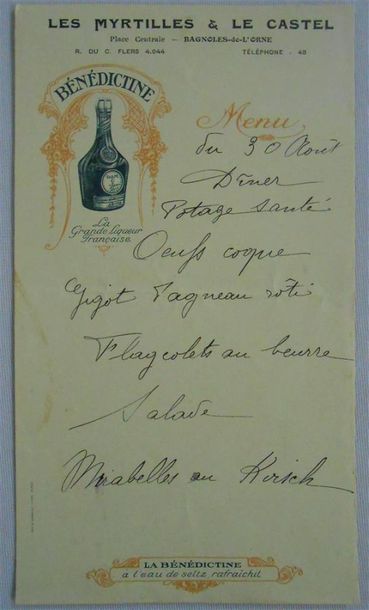 LES MYRTILLES & LE CASTEL
Place Centrale — BAGNOLES-de-L'ORNE
R. DU C. FLERS 4.044 TÉLÉPHONE - 48
BÉNÉDICTINE
La
Grande Liqueur
Française
Menu
du 30 Août
Dîner
Potage santé
Oeufs coque
Gigot d'agneau rôti
Flageolets au beurre
Salade
Mirabelles au Kirsch
LA BÉNÉDICTINE
a l'eau de seltz rafraîchit